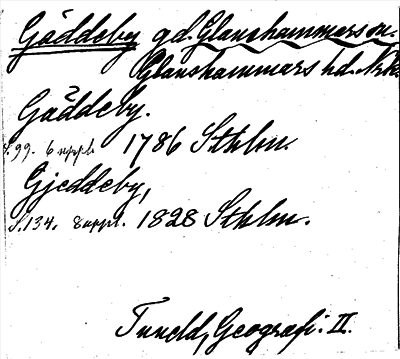 Gäddeby gd. Glanshammars sn.
Glanshammars hd. Nrk.
Gäddeby.
S. 99. 6 uppl. 1786 Sthlm.
Gjeddeby,
S. 134. 8 uppl. 1828 Sthlm.
Tuneld, Geografi: II.